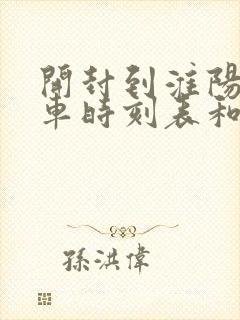 開封到淮陽
車時刻表和
孫洪偉